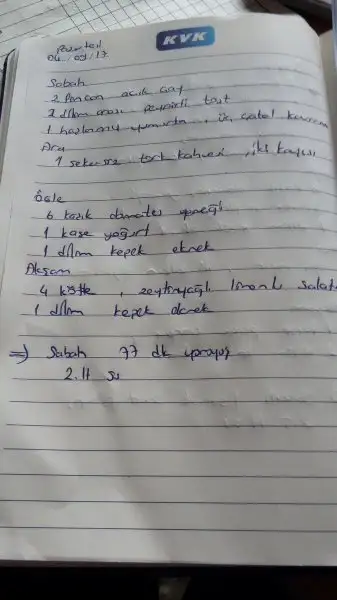 KVK
Pazartesi
04/09/17
Sabah
2 fincan açık çay
2 dilim arası peynirli tost
1 haşlanmış yumurta, üç çatal
Ara
1 şekersiz türk kahvesi, iki kayısı
Öğle
6 kaşık domates yemeği
1 kase yoğurt
1 dilim kepek ekmek
Akşam
4 köfte, zeytinyağlı limonlu salata
1 dilim kepek ekmek
⇒ Sabah 77 dk yürüyüş
2.lt su